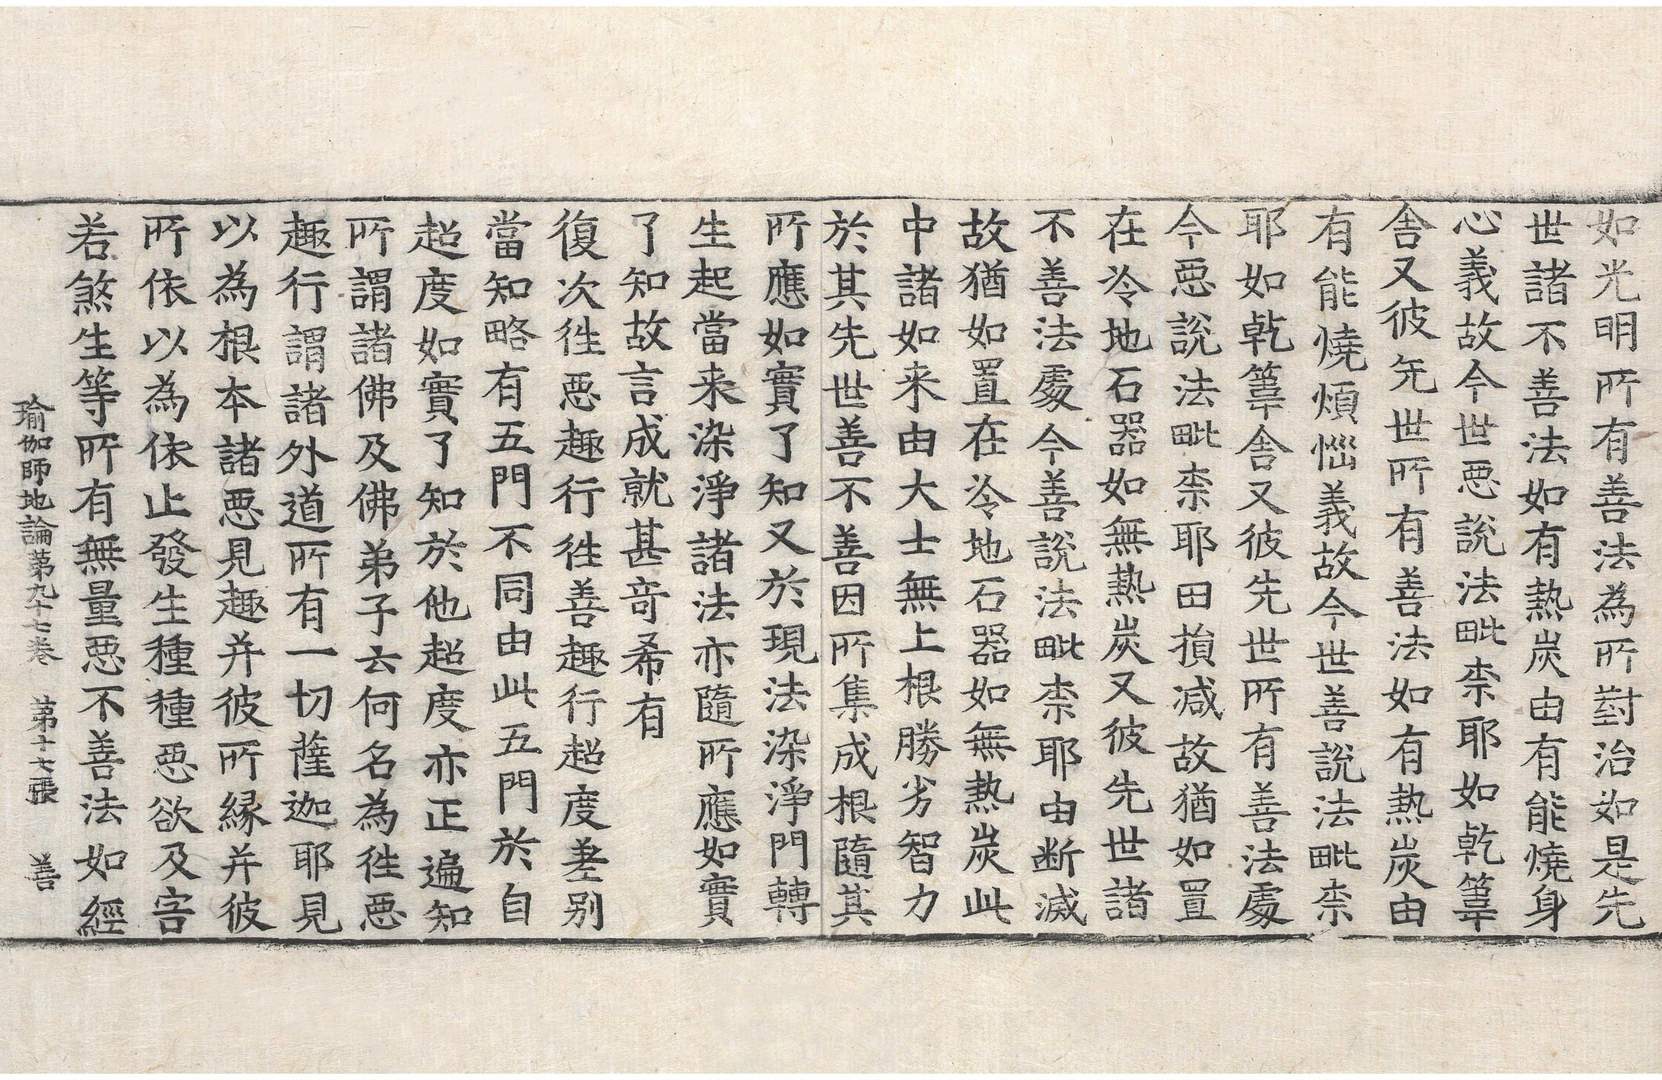 如光明所有善法為所對治如是先
世諸不善法如有熱炭由有能燒身
心義故今世惡說法毗柰耶如乾簞
舍又彼先世所有善法如有熱炭由
有能燒煩惱義故今世善說法毗柰
耶如乾簞舍又彼先世所有善法處
今惡說法毗柰耶田損減故猶如置
在冷地石器如無熱炭又彼先世諸
不善法處今善說法毗柰耶由斷滅
故猶如置在冷地石器如無熱炭此
中諸如来由大士無上根勝劣智力
於其先世善不善因所集成根隨其
所應如實了知又於現法染淨門轉
生起當来染淨諸法亦隨所應如實
了知故言成就甚奇希有
復次徃惡趣行徃善趣行超度差別
當知略有五門不同由此五門於自
超度如實了知於他超度亦正遍知
所謂諸佛及佛弟子云何名為徃惡
趣行謂諸外道所有一切薩迦耶見
以為根本諸惡見趣并彼所緣并彼
所依以為依止發生種種惡欲及害
若煞生等所有無量惡不善法如經
瑜伽師地論第九十七卷　第十七張　善